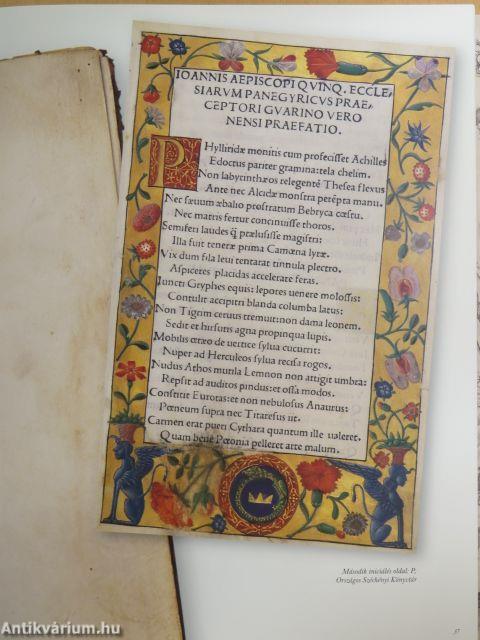 IOANNIS AEPISCOPI QVINQ. ECCLE-
SIARVM PANEGYRICVS PRAE-
CEPTORI GVARINO VERO
NENSI PRAEFATIO.
PHyllitidæ monitis cum profecisset Achilles
Edoctus pariter gramina: tela chelim.
Non labyrinthæos relegentē Thesea flexus
Ante nec Alcidæ monstra perēpta manu.
Nec sæuum æbalio prostratum Bebryca cœstu.
Nec matris fertur concinuisse thoros.
Semiferi laudes q̄ prælusisse magistri:
Illa fuit teneræ prima Camœna lyræ.
Vix dum fila leui tentarat tinnula plectro.
Aspiceres placidas accelerare feras.
Iuncti Gryphes equis: lepores uenere molossis:
Contulit accipitri blanda columba latus:
Non Tigrim ceruus tremuit: non dama leonem.
Sedit et hirsutis agna propinqua lupis.
Mobilis ætræo de uertice sylua cucurrit:
Nuper ad Herculeos sylua recisa rogos.
Nudus Athos mutila Lemnon non attigit umbra:
Repsit ad auditos pindus: et ossa modos.
Constitit Eurotas: et non nebulosus Anaurus:
Pœneum supra nec Titaresus iit.
Carmen erat pueri Cythara quantum ille ualeret.
Quam bene Pæonia pelleret arte malum.
Második iniciálés oldal: P.
Országos Széchényi Könyvtár
37
Antikvárium.hu